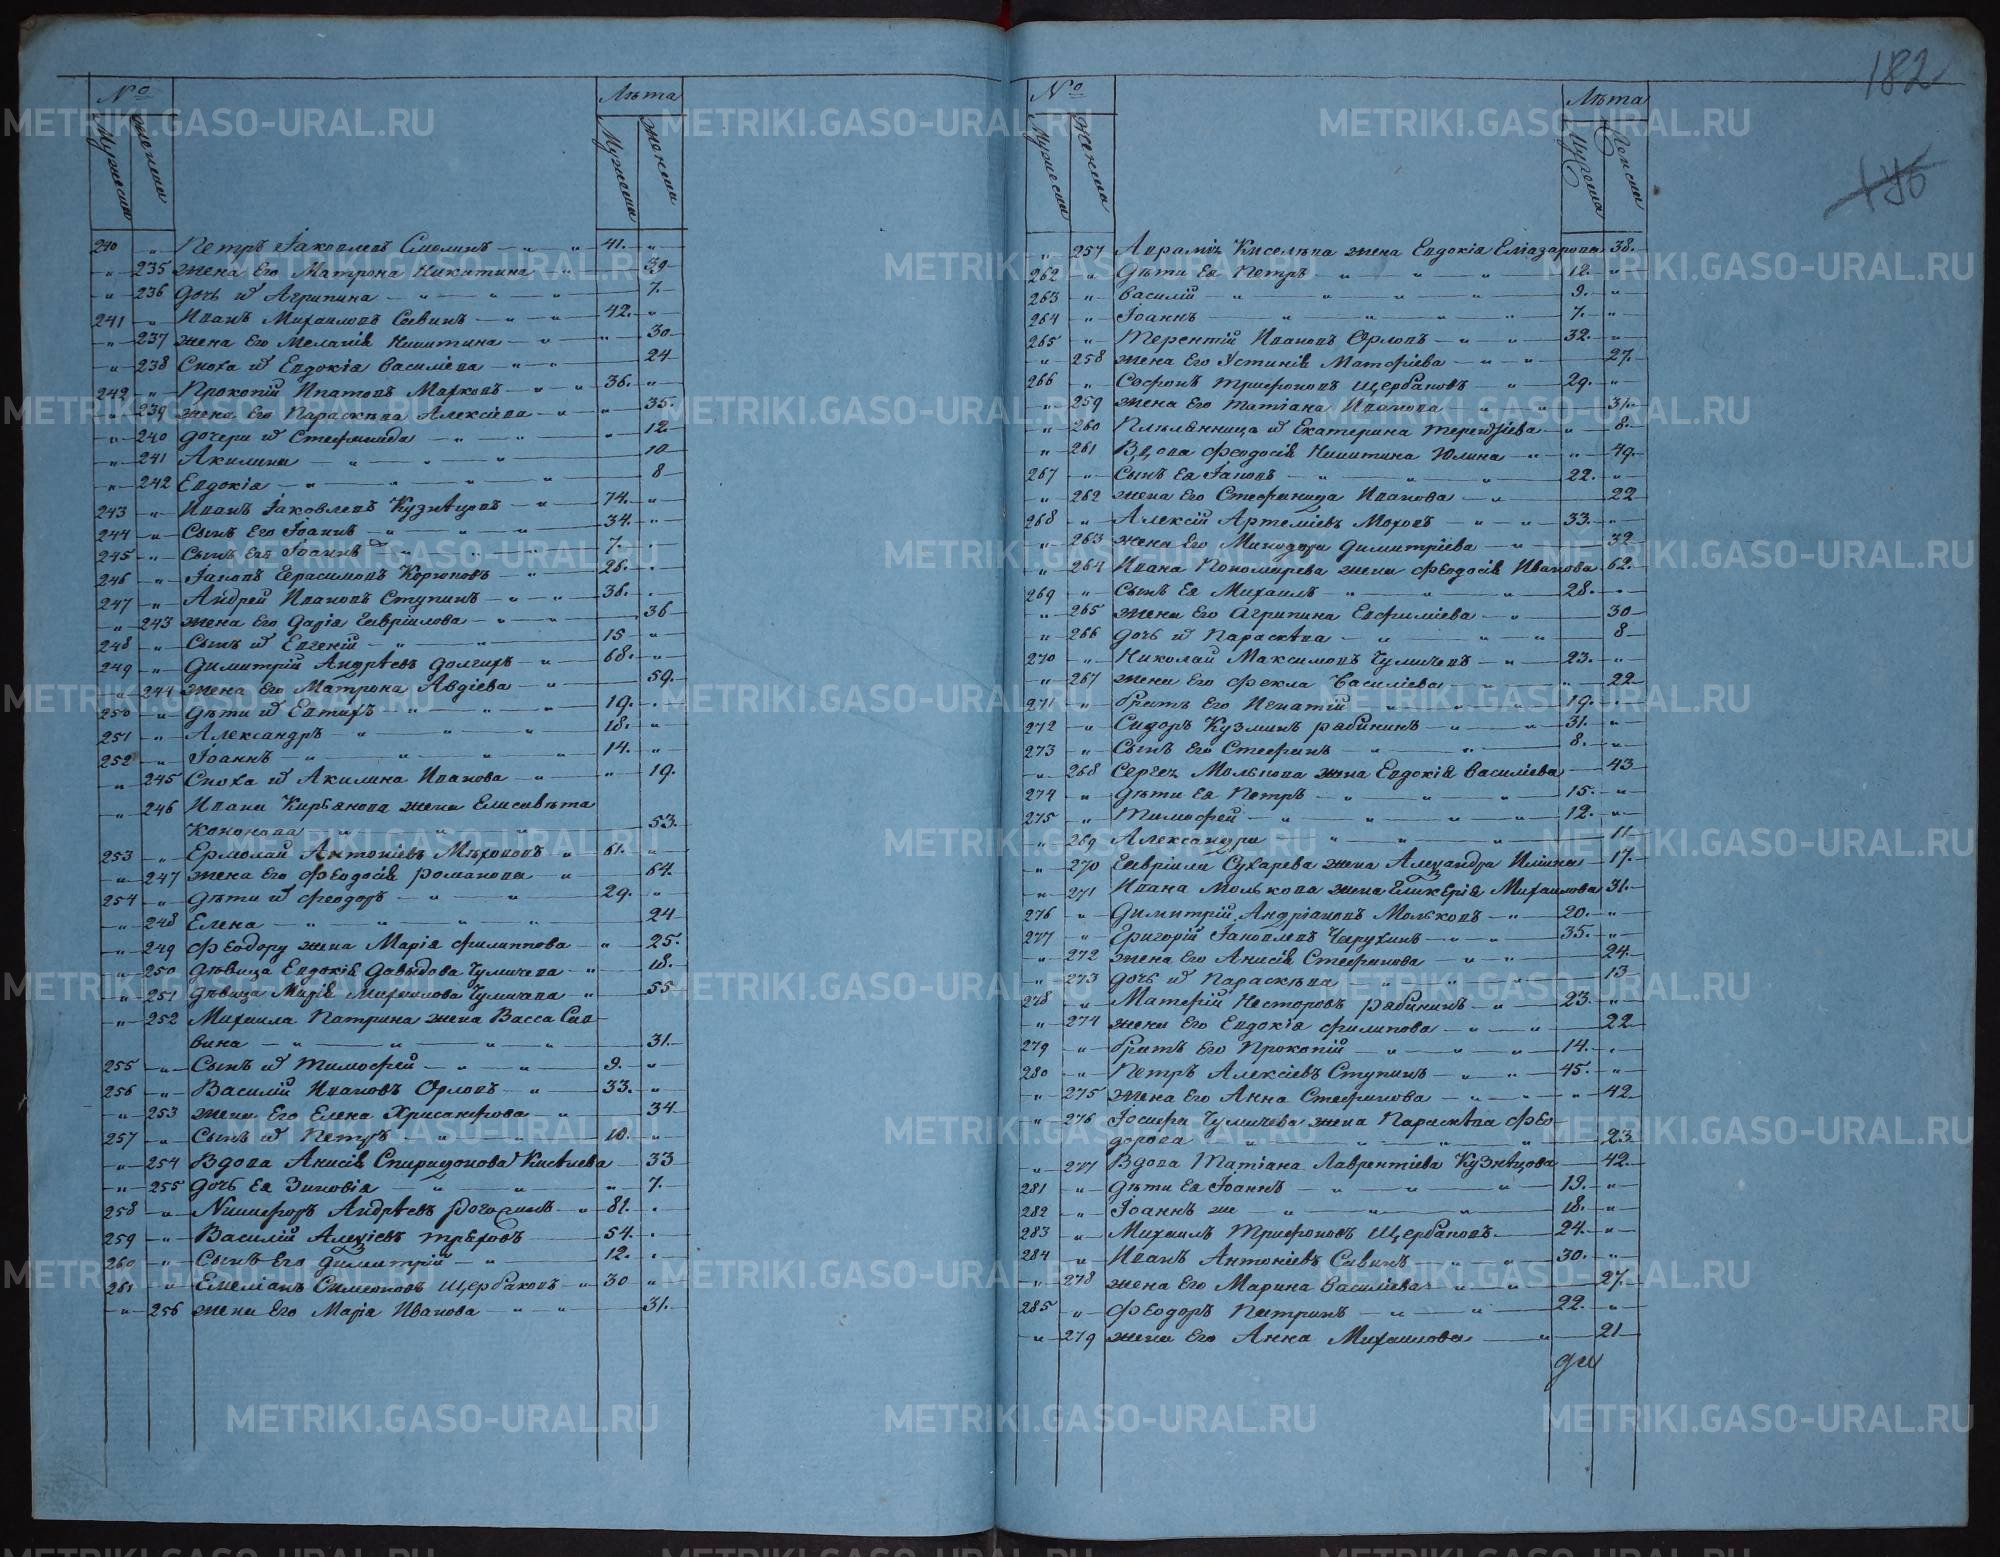 № Лѣта
Мужеска Женска Мужеска Женска
240 " Петръ Іаковлевъ Смолинъ — " — " 41. "
" 235 жена Его Матрона Никитина " 39
" 236 дочь и҃ Агрипина — " — " — " 7.
241 " Иванъ Михаиловъ Савинъ — " — " 42. "
" 237 жена Его Мелания Никитина — " " 30
" 238 Сноха и҃ Евдокія Василіева — " — " 24
242 " Прокопій Ипатовъ Марковъ — " — " 36. "
" 239 жена Его Параскѣва Алексіева — " " 35.
" 240 дочери и҃ Стефанида — " — " " 12
" 241 Акилина — " — " — " 10
" 242 Евдокія — " — " — " — " 8
243 " Иванъ Іаковлевъ Кузнѣцовъ — " 74. "
244 " Сынъ Его Іоаннъ — " — " — " 34. "
245 " Сынъ Его Іоаннъ — " — " — " 7. "
246 " Іаковъ Герасимовъ Корюковъ — " 26. "
247 " Андрей Ивановъ Ступинъ — " — " 36. "
" 243 жена Его Дарія Гавріилова — " — " 36
248 " Сынъ и҃ Евгеній — " — " 15 "
249 " Димитрій Андрѣевъ Долгихъ — " 68. "
" 244 жена Его Матрона Авдіева — " 59.
250 " Дѣти и҃ Евтихъ — " — " — " 19. "
251 " Александръ — " — " — " 18. "
252 " Іоаннъ — " — " — " — " 14. "
" 245 Сноха и҃ Акилина Иванова — " " 19.
" 246 Ивана Кирьянова жена Елисавѣта
Кононова " " " 53.
253 " Ермолай Антоніевъ Мѣхоновъ " 61. "
" 247 жена Его Феодосія Романова " 64.
254 " Дѣти и҃ Феодоръ — " — " 29. "
" 248 Елена — " — " — " — " 24
" 249 Феодору жена Марія Филиппова — " 25.
" 250 дѣвица Евдокія Давыдова Чумичева " 18.
" 251 дѣвица Марія Михаилова Чумичева " 55
" 252 Михаила Патрина жена Васса Сав-
вина — " — " — " — " 31.
255 " Сынъ и҃ Тимофей — " — " 9. "
256 " Василій Ивановъ Орловъ — " 33. "
" 253 жена Его Елена Хрисанфова " 34
257 " Сынъ и҃ Петръ — " — " 10. "
" 254 Вдова Анисія Спиридонова Киселева 33
" 255 дочь Ея Зиновія — " — " " 7.
258 " Никифоръ Андрѣевъ Рогозинъ — " 81. "
259 " Василій Алексіевъ Треховъ 54. "
260 " Сынъ Его Димитрій — " 12. "
261 " Емеліанъ Симеоновъ Щербаковъ " 30 "
" 256 жена Его Марія Иванова — " — " 31.
182
№ Лѣта
Мужеска Женска Мужеска Женска
" 257 Аврамія Киселѣва жена Евдокія Еліазарова 38.
262 " Дѣти Ея Петръ — " — " — " 12. "
263 " Василій — " — " — " — " 9. "
264 " Іоаннъ — " — " — " — " 7. "
265 " Терентій Ивановъ Орловъ — " — " 32. "
" 258 жена Его Устинія Матфіева — " — " 27.
266 " Софонъ Трифоновъ Щербаковъ — " 29. "
" 259 жена Его Татіана Иванова — " — " 31.
" 260 Племянница и҃ Екатерина Терентіева — " 8.
" 261 Вдова Феодосія Никитина Юлина — " " 49.
267 " Сынъ Ея Іаковъ — " — " — " 22. "
" 262 жена Его Стефанида Иванова — " 22
268 " Алексій Артеміевъ Моховъ — " — " 33. "
" 263 жена Его Минодора Димитріева — " 32
" 264 Ивана Пономарева жена Феодосія Иванова 62.
269 " Сынъ Ея Михаилъ — " — " — " 28. "
" 265 жена Его Агрипина Евфиміева — " 30
" 266 дочь и҃ Параскѣва — " — " — " 8
270 " Николай Максимовъ Чумичевъ — " 23. "
" 267 жена Его Фекла Василіева " " 22
271 " братъ Его Игнатій — " — " 19. "
272 " Сидоръ Кузминъ Рябининъ — " — " 31. "
273 " Сынъ Его Стефанъ — " — " 8. "
" 268 Сергея Молькова жена Евдокія Василіева 43
274 " Дѣти Ея Петръ — " — " — " 15. "
275 " Тимофей — " — " — " — " 12. "
" 269 Александра " " " 11
" 270 Гавріила Сухарева жена Александра Ильина 17.
" 271 Ивана Молькова жена Гликерія Михаилова 31.
276 " Димитрій Андріановъ Мольковъ — " 20. "
277 " Григорій Іаковлевъ Чарухинъ — " — " 35. "
" 272 жена Его Анисія Стефанова — " — " 24.
" 273 дочь и҃ Параскѣва " " 13
278 " Матфій Несторовъ Рябининъ — " 23. "
" 274 жена Его Евдокія Филипова — " — " 22
279 " братъ Его Прокопій — " — " — " 14. "
280 " Петръ Алексіевъ Ступинъ — " — " 45. "
" 275 жена Его Анна Стефанова — " — " " 42
" 276 Іосифа Чумичева жена Параскѣва Фео-
дорова " " " " 23
" 277 Вдова Татіана Лаврентіева Кузнѣцова 42.
281 " Дѣти Ея Іоаннъ — " — " — " 19. "
282 " Іоаннъ же — " — " — " 18. "
283 " Михаилъ Трифоновъ Щербаковъ 24. "
284 " Иванъ Антоніевъ Савинъ " " 30. "
" 278 жена Его Марина Василіева " " 27.
285 " Феодоръ Патринъ — " — " 22. "
" 279 жена Его Анна Михаилова " 21